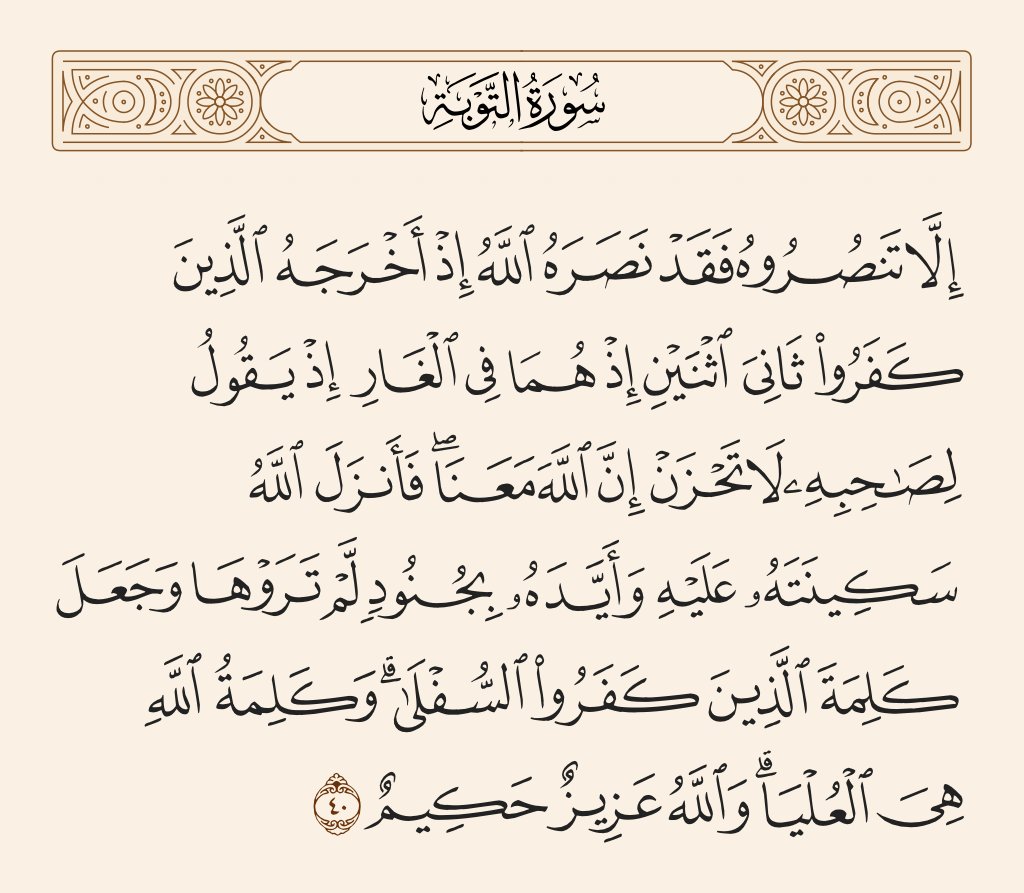 سُورَةُ التَّوۡبَةِ
إِلَّا تَنصُرُوهُ فَقَدۡ نَصَرَهُ ٱللَّهُ إِذۡ أَخۡرَجَهُ ٱلَّذِينَ
كَفَرُواْ ثَانِيَ ٱثۡنَيۡنِ إِذۡ هُمَا فِي ٱلۡغَارِ إِذۡ يَقُولُ
لِصَٰحِبِهِۦ لَا تَحۡزَنۡ إِنَّ ٱللَّهَ مَعَنَاۖ فَأَنزَلَ ٱللَّهُ
سَكِينَتَهُۥ عَلَيۡهِ وَأَيَّدَهُۥ بِجُنُودٖ لَّمۡ تَرَوۡهَا وَجَعَلَ
كَلِمَةَ ٱلَّذِينَ كَفَرُواْ ٱلسُّفۡلَىٰۗ وَكَلِمَةُ ٱللَّهِ
هِيَ ٱلۡعُلۡيَاۗ وَٱللَّهُ عَزِيزٌ حَكِيمٌ ٤٠